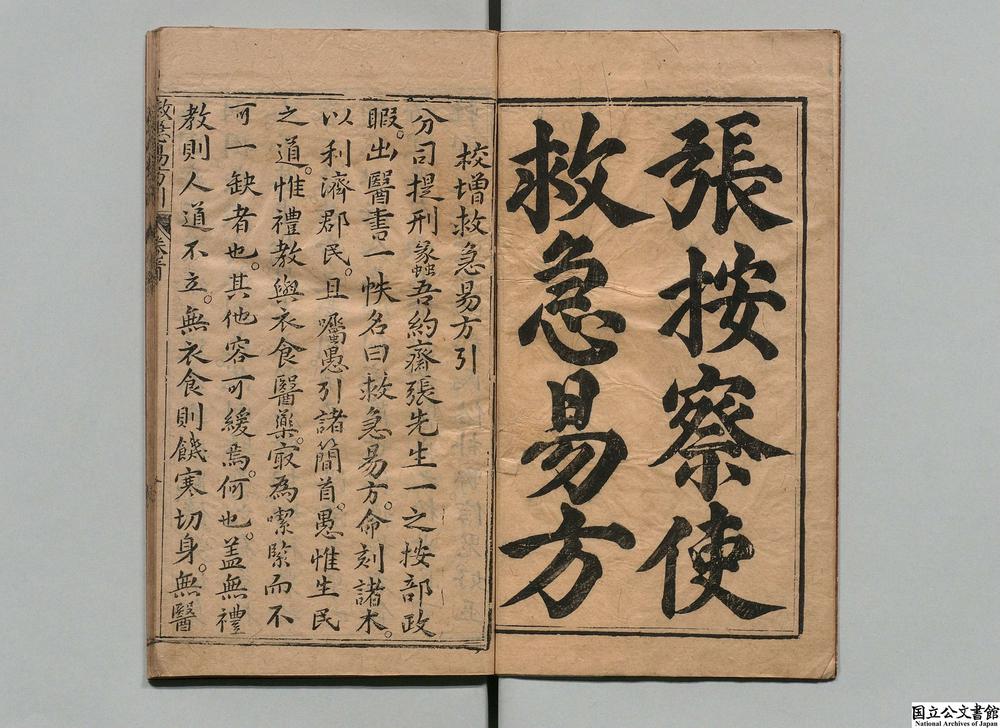 張按察使
救急易方
校增救急易方引
分司提刑彖蝨吾約齋張先生一之按部政
暇。出醫書一帙名曰救急易方。命刻諸木。
以利濟郡民。且囑愚引諸簡首。愚惟生民
之道。惟禮教與衣食醫藥㝡為喫緊而不
可一缺者也。其他容可緩焉。何也。盖無禮
教則人道不立。無衣食則饑寒切身。無醫
救急易方引
国立公文書館
National Archives of Japan